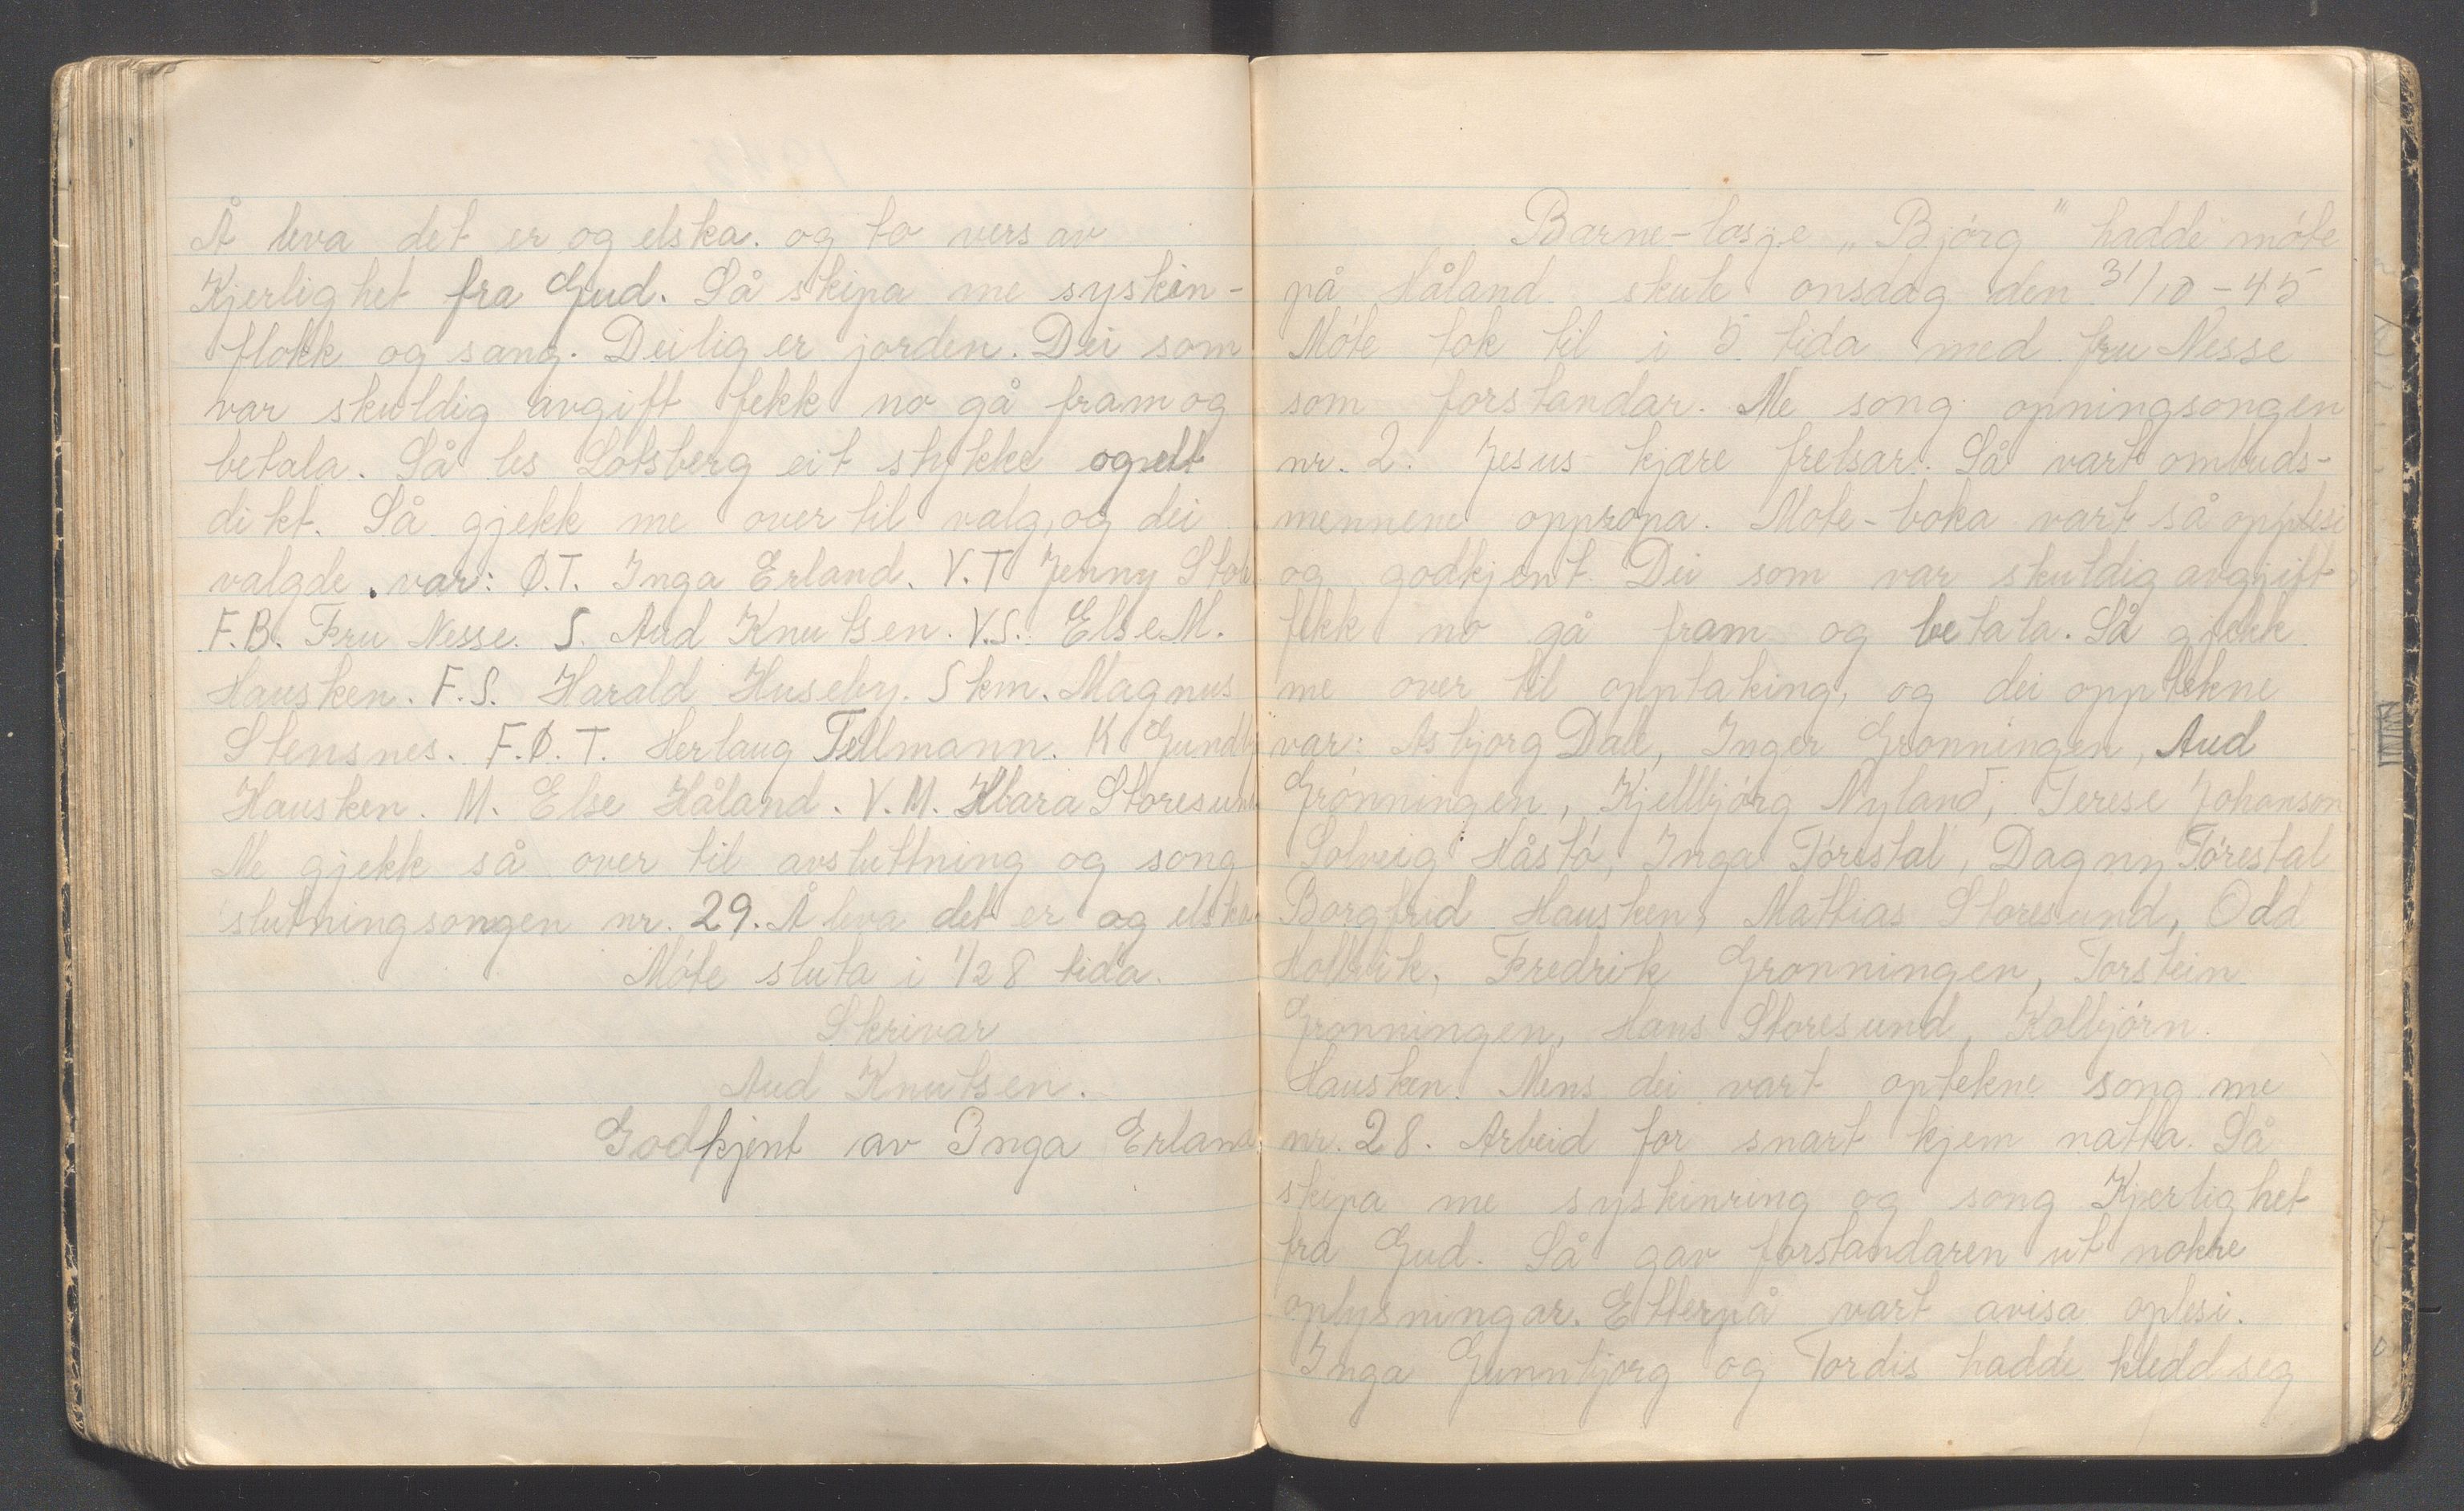 Å leva det er og elska. og to vers av
Kjerlighet fra Gud. Så skipa me syskin-
flokk og sang. Deilig er jorden. Dei som
var skuldig avgift fekk no gå fram og
betala. Så les Lotsberg eit stykke og eitt
dikt. Så gjekk me over til valg, og dei
valgde var: Ø.T. Inga Erland. V.T. Jenny
F.B. Fru Nesse. S. Aud Knutsen. V.S. Else M.
Hausken. F.S. Harald Huseby. Skm. Magnus
Stensnes. F.Ø.T. Herlaug Tellmann. K
Hausken. M. Else Håland. V.M. Klara Storesund
Me gjekk så over til avsluttning og song
slutningsongen nr. 29. Å leva det er og elska
Móte sluta i 1/2 8 tida.
Skrivar
Aud Knutsen.
Godkjent av Inga Erland
Barne-losje „Bjórg" hadde móte
på Håland skule onsdag den 31/10-45
Móte tok til i 5 tida med fru Nesse
som forstandar. Me song opningsongen
nr. 2. Jesus kjære frelsar. Så vart ombuds-
mennene oppropa. Mote-boka vart så opplesi
og godkjent. Dei som var skuldig avgjift
fekk no gå fram og betala. Så gjekk
me over til opptaking, og dei opptekne
var: Asbjorg Dale, Inger Gronningen, Aud
Grónningen, Kjellbjórg Nyland, Terese Johanson
Solveig Håstó, Inga Tórestal, Dagny Tórestal
Borgfrid Hausken, Mattias Storesund, Odd
Holvik, Fredrik Gronningen, Torstein
Gronningen, Hans Storesund, Kolbjórn.
Hausken. Mens dei vart optekne song me
nr. 28. Arbeid for snart kjem natta. Så
skipa me syskinring og song Kjerlighet
fra Gud. Så gav forstandaren ut nokre
oplysningar. Etterpå vart avisa oplesi.
Inga Gunnbjorg og Tordis hadde kledd seg